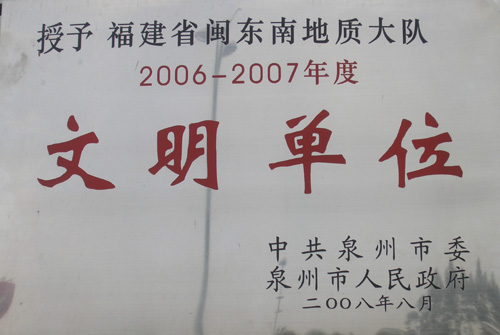 授予 福建省闽东南地质大队
2006-2007年度
文明单位
中共泉州市委
泉州市人民政府
二〇〇八年八月